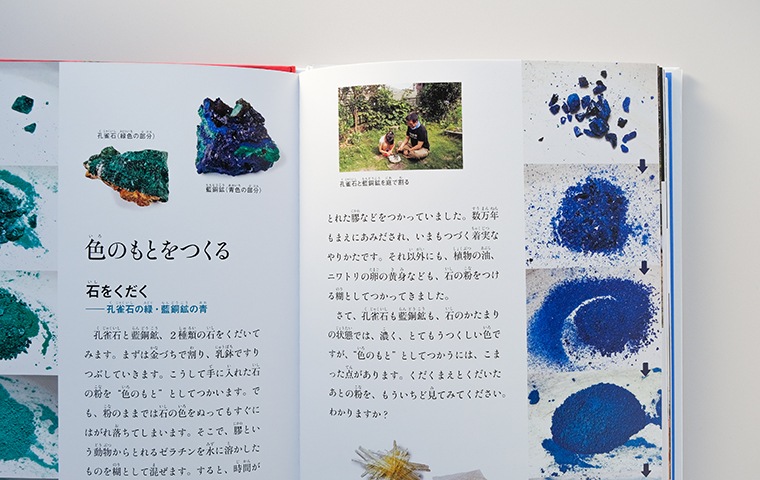 孔雀石(緑色の部分)
藍銅鉱(青色の部分)
色のもとをつくる
石をくだく
──孔雀石の緑・藍銅鉱の青
孔雀石と藍銅鉱、2種類の石をくだいて
みます。まずは金づちで割り、乳鉢ですり
つぶしていきます。こうして手に入れた石
の粉を“色のもと”としてつかいます。で
も、粉のままでは石の色をぬってもすぐに
はがれ落ちてしまいます。そこで、膠とい
う動物からとれるゼラチンを水に溶かした
ものを糊として混ぜます。すると、時間が
孔雀石と藍銅鉱を庭で割る
とれた膠などをつかっていました。数万年
もまえにあみだされ、いまもつづく着実な
やりかたです。それ以外にも、植物の油、
ニワトリの卵の黄身なども、石の粉をつけ
る糊としてつかってきました。
さて、孔雀石も藍銅鉱も、石のかたまり
の状態では、濃く、とてもうつくしい色で
すが、“色のもと”としてつかうには、こま
った点があります。くだくまえとくだいた
あとの粉を、もういちど見てみてください。
わかりますか?